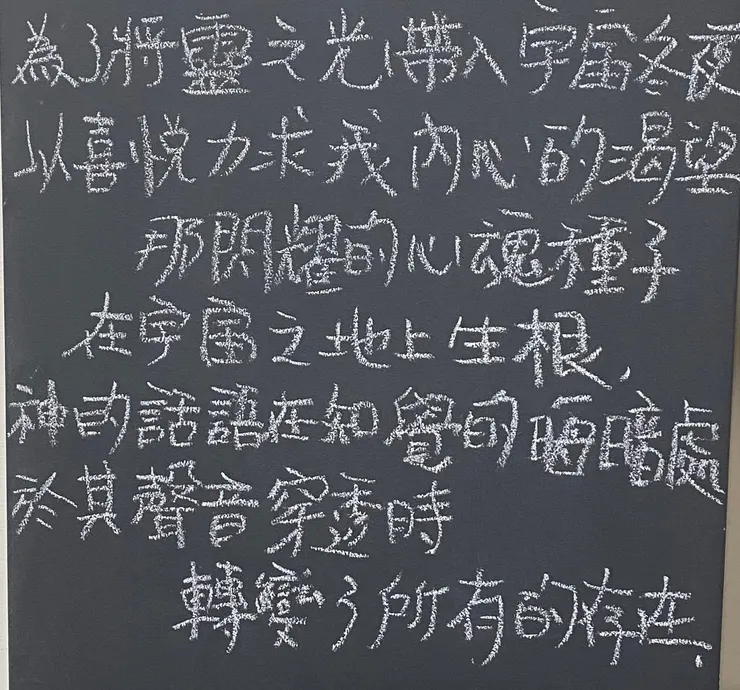 為了將靈之光帶入宇宙冬夜
以喜悅力求我內心的渴望
那閃耀的心魂種子
在宇宙之地上生根、
神的話語在知覺的晦暗處
於其聲音穿透時
轉變了所有的存在.